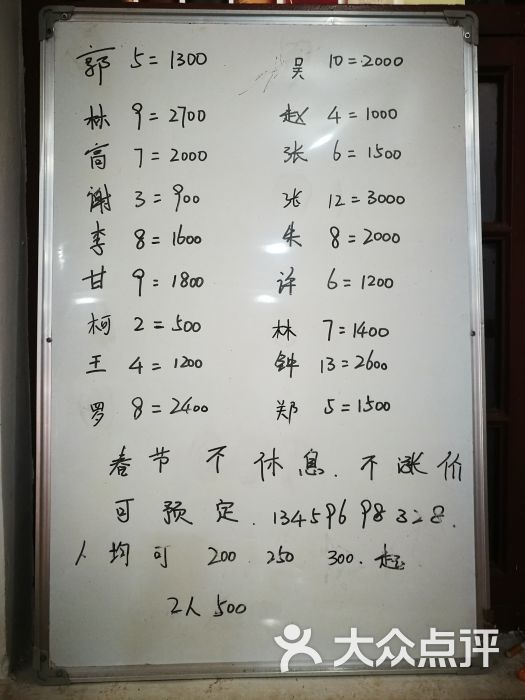 郭 5=1300 吴 10=2000
林 9=2700 赵 4=1000
高 7=2000 张 6=1500
谢 3=900 张 12=3000
李 8=1600 朱 8=2000
甘 9=1800 许 6=1200
柯 2=500 林 7=1400
王 4=1200 钟 13=2600
罗 8=2400 郑 5=1500
春节不休息.不涨价
可预定.13459698328.
人均可 200 250 300.起
2人 500
大众点评